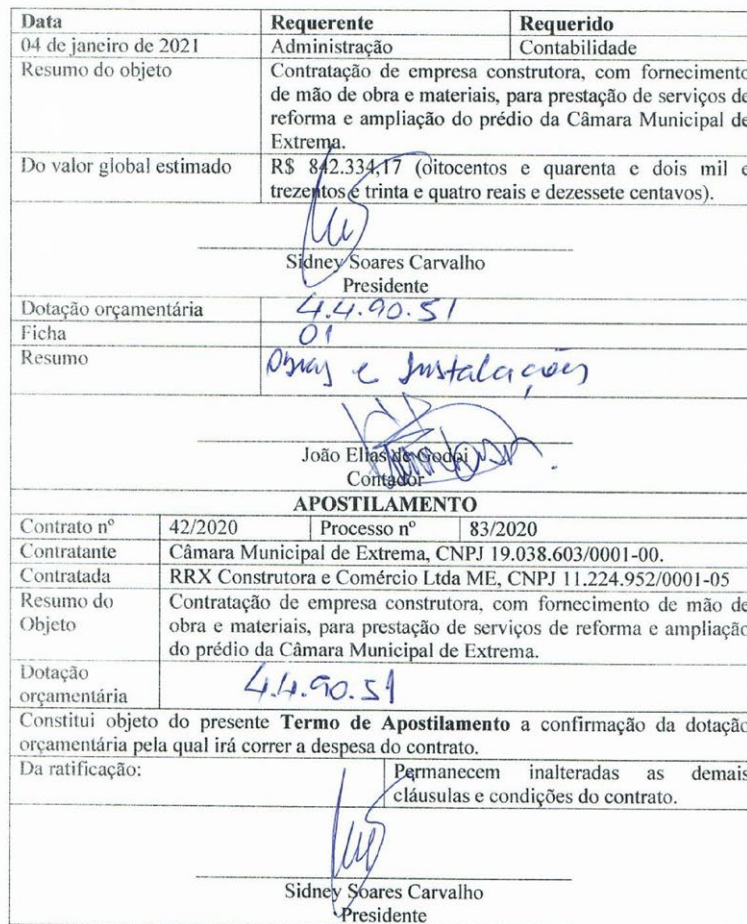 Data Requerente Requerido
04 de janeiro de 2021 Administração Contabilidade
Resumo do objeto Contratação de empresa construtora, com fornecimento
de mão de obra e materiais, para prestação de serviços de
reforma e ampliação do prédio da Câmara Municipal de
Extrema.
Do valor global estimado R$ 842.334,17 (oitocentos e quarenta e dois mil e
trezentos e trinta e quatro reais e dezessete centavos).
Sidney Soares Carvalho
Presidente
Dotação orçamentária 4.4.90.51
Ficha 01
Resumo Obras e Instalações
João Elias de Godoi
Contador
APOSTILAMENTO
Contrato nº 42/2020 Processo nº 83/2020
Contratante Câmara Municipal de Extrema, CNPJ 19.038.603/0001-00.
Contratada RRX Construtora e Comércio Ltda ME, CNPJ 11.224.952/0001-05
Resumo do Contratação de empresa construtora, com fornecimento de mão de
Objeto obra e materiais, para prestação de serviços de reforma e ampliação
do prédio da Câmara Municipal de Extrema.
Dotação
orçamentária 4.4.90.51
Constitui objeto do presente Termo de Apostilamento a confirmação da dotação
orçamentária pela qual irá correr a despesa do contrato.
Da ratificação: Permanecem inalteradas as demais
cláusulas e condições do contrato.
Sidney Soares Carvalho
Presidente